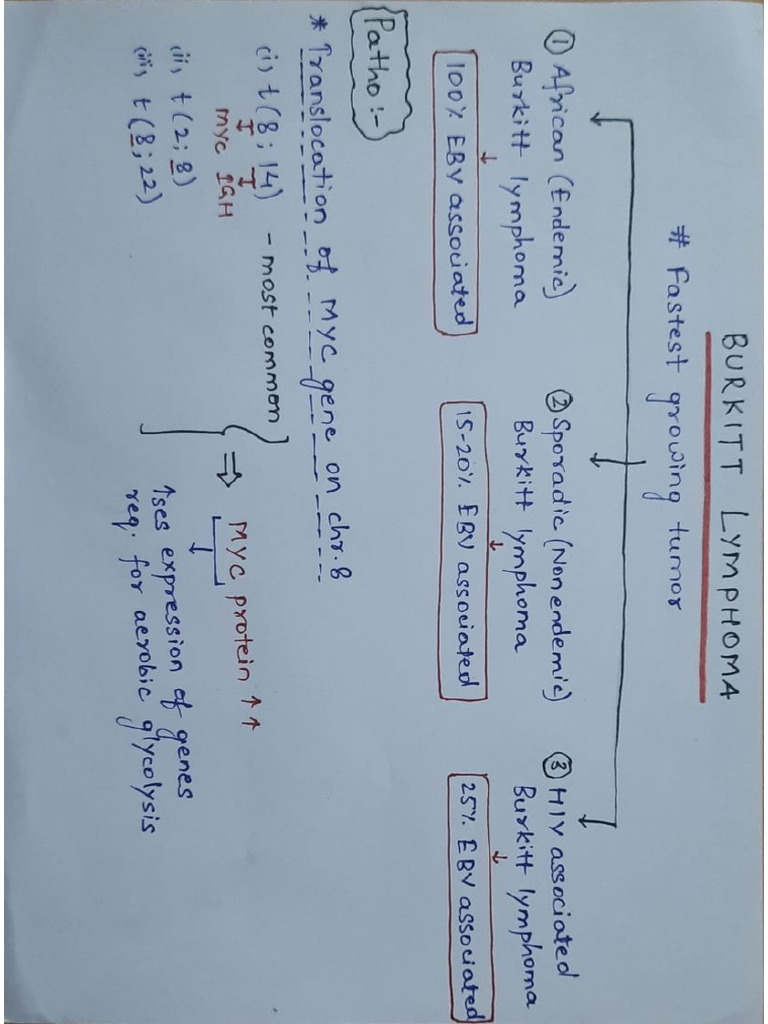 BURKITT LYMPHOMA
# Fastest growing tumor
① African (Endemic)
Burkitt lymphoma
↓
100% EBV associated
② Sporadic (Non endemic)
Burkitt lymphoma
↓
15-20% EBV associated
③ HIV associated
Burkitt lymphoma
↓
25% EBV associated
Patho :-
* Translocation of MYC gene on chr. 8
(i) t(8; 14) - most common
MYC IGH
(ii) t(2; 8)
(iii) t(8; 22)
⇒ MYC protein ↑ ↑
↓
↑ses expression of genes
req. for aerobic glycolysis